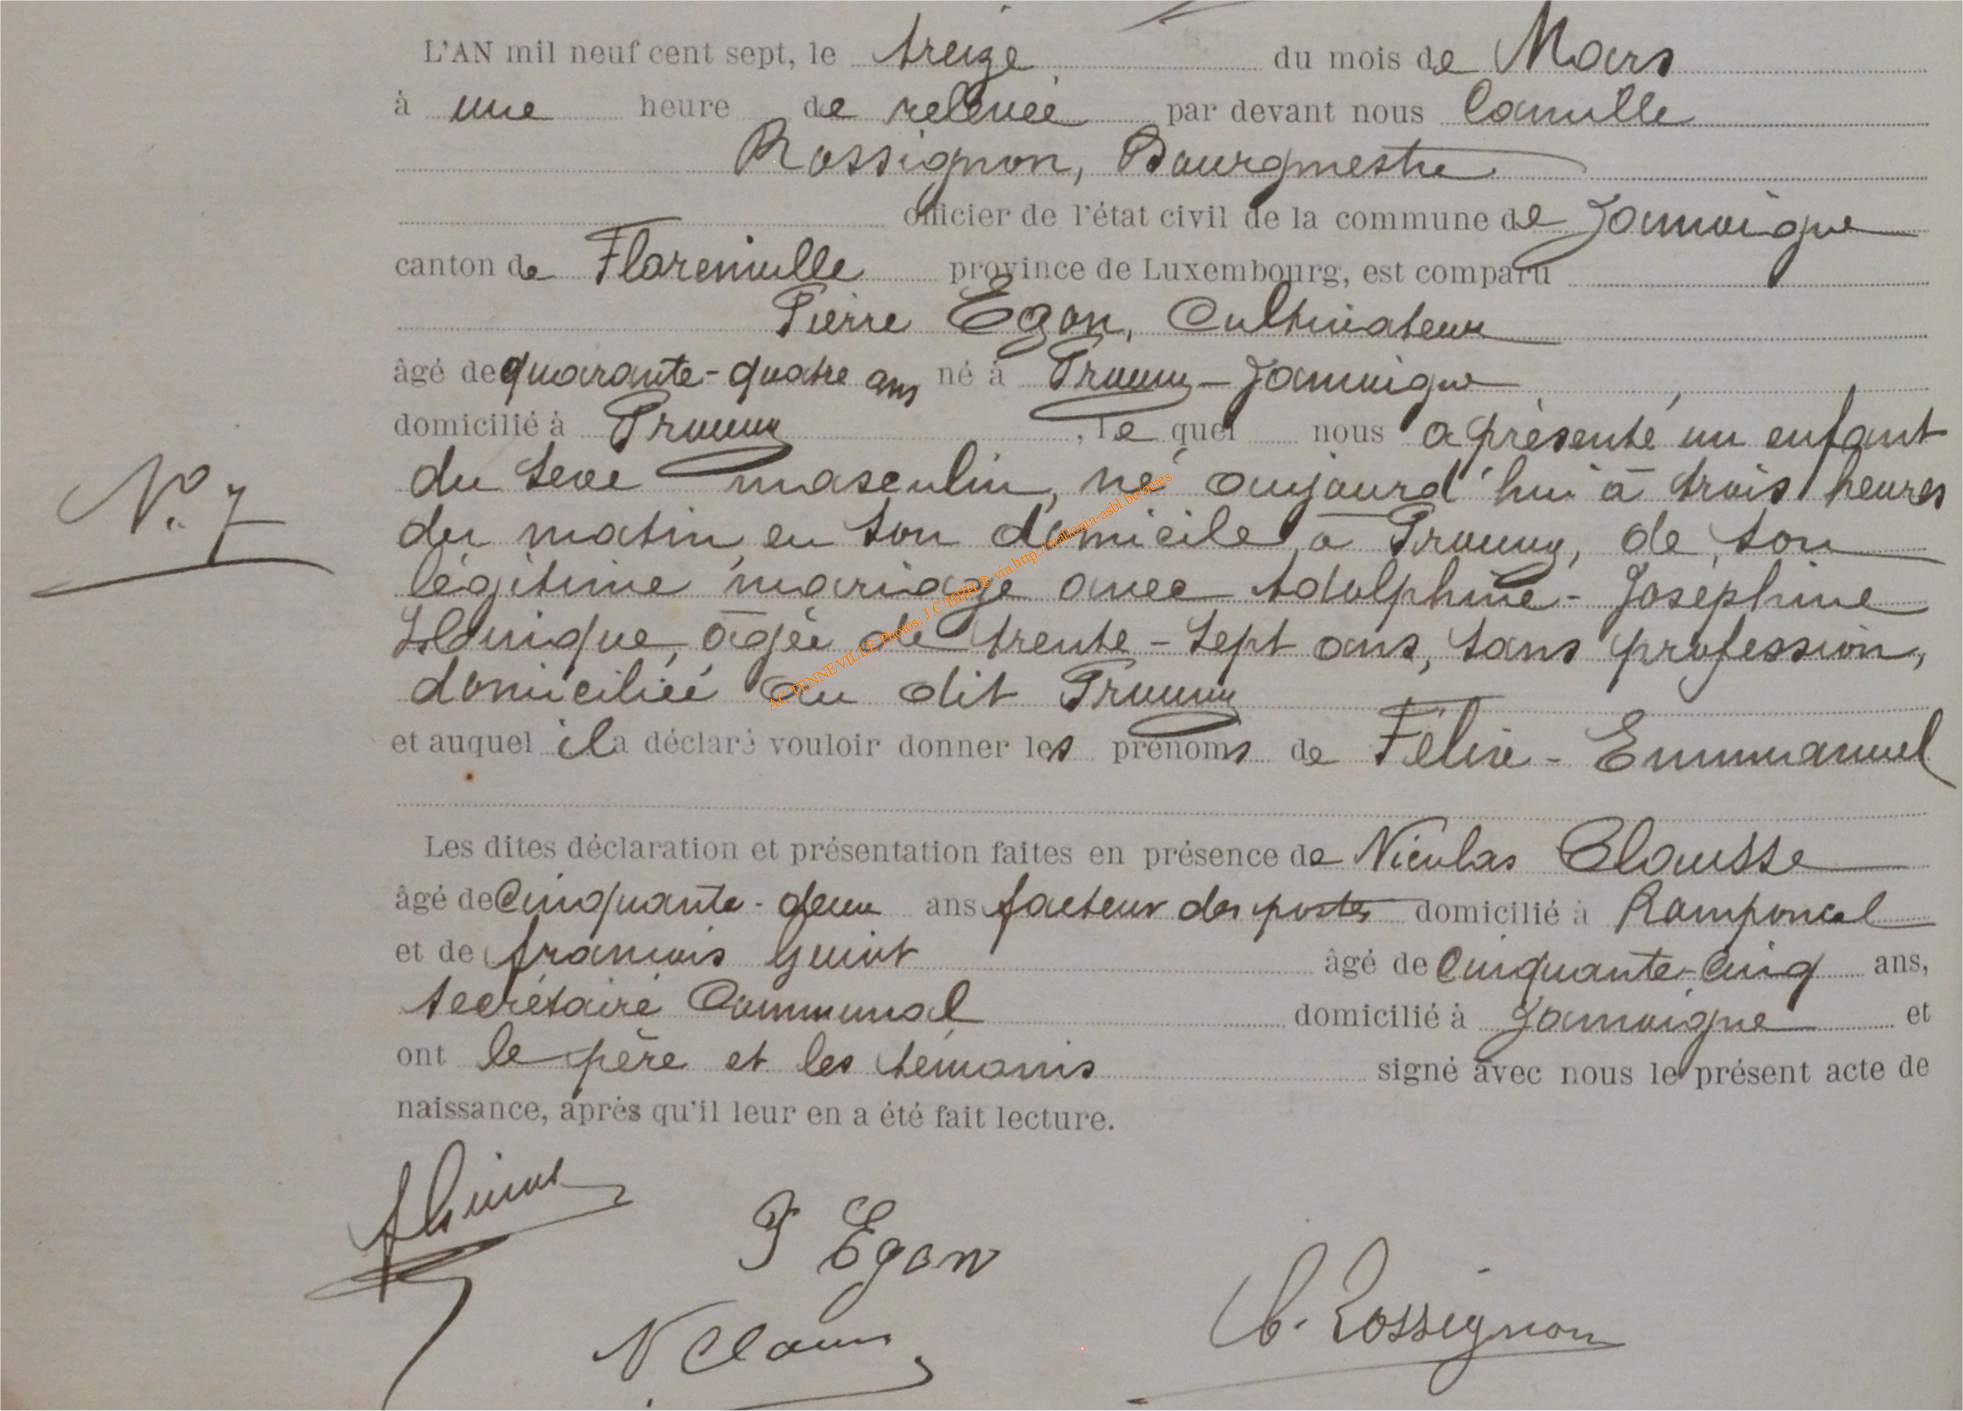 L'AN mil neuf cent sept, le treize du mois de Mars
à une heure de relevée par devant nous Camille
Rossignon, Bourgmestre
officier de l'état civil de la commune de Jamoigne
canton de Florenville province de Luxembourg, est comparu
Pierre Egon, Cultivateur
âgé de quarante-quatre ans né à Prouvy-Jamoigne,
domicilié à Prouvy, le quel nous a présenté un enfant
N° 7
du sexe masculin, né aujourd'hui à trois heures
du matin, en son domicile, à Prouvy, de son
légitime mariage avec Adolphine-Joséphine
, âgée de trente-sept ans, sans profession,
domiciliée au dit Prouvy
et auquel il a déclaré vouloir donner les prénoms de Félix-Emmanuel
Les dites déclaration et présentation faites en présence de Nicolas Clausse
âgé de Cinquante-deux ans facteur des postes domicilié à Romponcel
et de françois Guiot âgé de Cinquante-Cinq ans,
secrétaire Communal domicilié à Jamoigne et
ont le père et les témoins signé avec nous le présent acte de
naissance, après qu'il leur en a été fait lecture.
f Guiot
P Egon
N Clauss
C. Rossignon